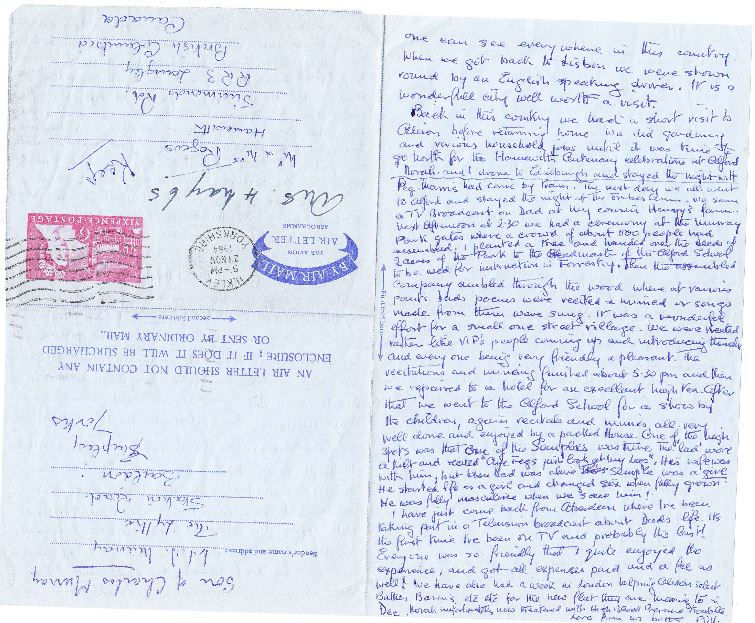 one can see everywhere in this country.
When we got back to Lisbon we were shown
round by an English speaking driver. It is a
wonderfull city well worth a visit.
Back in this country we had a short visit to
Alison before returning home. We did gardening
and various household jobs until it was time to
go north for the Hamewith Centenary celebrations at Alford
Norah and I drove to Edinburgh and stayed the night with
Peg Harris had come by train. The next day we all went
to Alford and stayed the night at the Forbes Arms. We saw
a TV Broadcast on Dad at my cousin Harry's farm.
Next afternoon at 2:30 we had a ceremony at the Murray
Park gates where a crowd of about 500 people had
assembled. I planted a tree and handed over the deeds of
2 acres of the Park to the Headmaster of the Alford School
to be used for instruction in Forrestry. Then the assembled
company ambled through the wood where at various
points Dads poems were recited & mimed or songs
made from them were sung. It was a wonderful
effort for a small one street village. We were treated
rather like VIP's people coming up and introducing themselves
and every one being very friendly & pleasant. The
recitations and miming finished about 5.30 pm and then
we repaired to a hotel for an excellent high tea. After
that we went to the Alford School for a show by
the children, again recitals and mimes all very
well done and enjoyed by a packed House. One of the high
spots was that one of the Semples was there. He wore
a kilt and
with him, but when Dad was alive this Semple was a girl
He started life as a girl and changed sex when fully grown
He was fully masculine when we saw him!
I have just come back from Aberdeen where I've been
taking part in a Television broadcast about Dads life. It's
the first time I've been on TV and probably the last!
Everyone was so friendly that I quite enjoyed the
experience, and got all expenses paid and a fee as
well! We have also had a week in London helping Alison select
Baths Basins, etc etc for the new flat they are moving to in
Dec. Norah unfortunately now threatened with High Blood Pressure Trouble
Love from us both Bill
This Line Second
BY AIR MAIL
AIR LETTER
PAR AVION
AEROGRAMME
SIXPENCE POSTAGE
6D
ILKLEY
YORKSHIRE
5 - PM
21 NOV
1964
Ans 4 May 65
Keep
Mr & Mrs Rogers
Hamewith
Simmonds Rd.
RR 3 Langley
British Columbia
Canada
second fold here
AN AIR LETTER SHOULD NOT CONTAIN ANY
ENCLOSURE ; IF IT DOES IT WILL BE SURCHARGED
OR SENT BY ORDINARY MAIL.
Son of Charles Murray
Sender's name and address:
Murray
The Lythe
Baildon
Shipley
Yorks